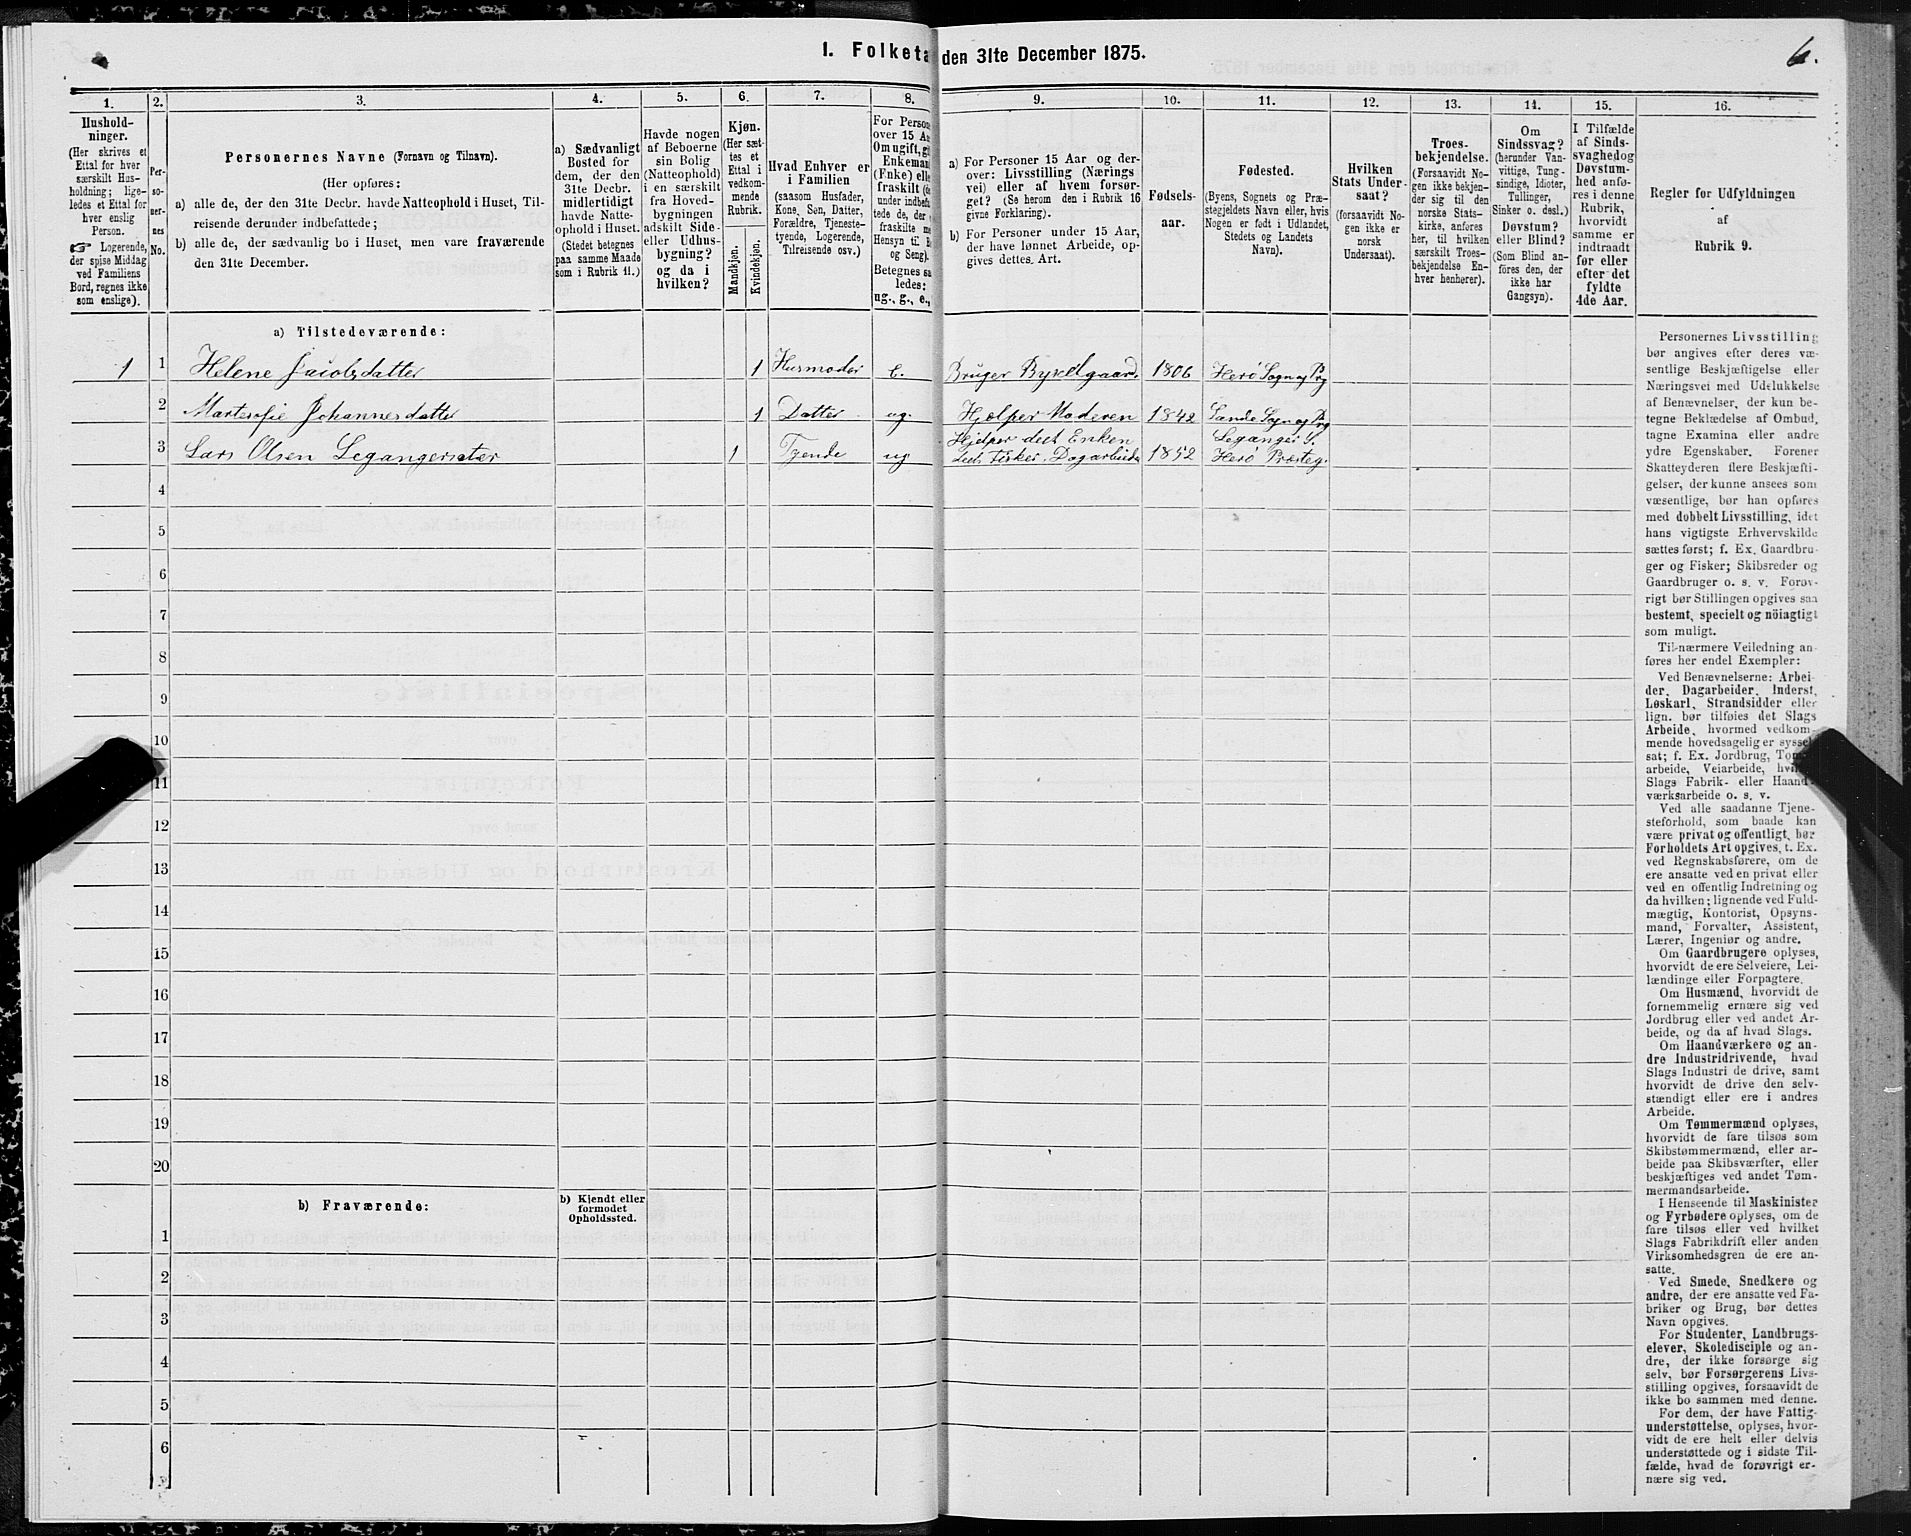 1. Folketa den 31te December 1875.
6.
1.
Hushold-
ninger.
(Her skrives et
Ettal for hver
særskilt Hus-
holdning; lige-
ledes et Ettal for
hver enslig
Person.
☛ Logerende,
der spise Middag
ved Familiens
Bord, regnes ikke
som enslige).
2.
Per-
so-
ner-
nes
No.
3.
Personernes Navne (Fornavn og Tilnavn).
(Her opføres:
a) alle de, der den 31te Decbr. havde Natteophold i Huset, Til-
reisende derunder indbefattede;
b) alle de, der sædvanlig bo i Huset, men vare fraværende
den 31te December.
4.
a) Sædvanligt
Bosted for
dem, der den
31te Decbr.
midlertidigt
havde Natte-
ophold i Huset.
(Stedet betegnes
paa samme Maade
som i Rubrik 11.)
5.
Havde nogen
af Beboerne
sin Bolig
(Natteophold)
i en særskilt
fra Hoved-
bygningen
adskilt Side-
eller Udhus-
bygning?
og da i
hvilken?
6.
Kjøn.
(Her sæt-
tes et
Ettal i
vedkom-
mende
Rubrik.
Mandkjøn.
Kvindekjøn.
7.
Hvad Enhver er
i Familien
(saasom Husfader,
Kone, Søn, Datter,
Forældre, Tjeneste-
tyende, Logerende,
Tilreisende osv.)
8.
For Persone
over 15 Aar
Om ugift, g
Enkeman
(Enke) elle
fraskilt (
under indbefa
tede de, der
fraskilte m
Hensyn til B
og Seng).
Betegnes sa
ledes:
ug., g., e.,
9.
a) For Personer 15 Aar og der-
over: Livsstilling (Nærings
vei) eller af hvem forsør-
get? (Se herom den i Rubrik 16
givne Forklaring).
b) For Personer under 15 Aar,
der have lønnet Arbeide, op-
gives dettes Art.
10.
Fødsels-
aar.
11.
Fødested.
(Byens, Sognets og Præ-
stegjeldets Navn eller, hvis
Nogen er født i Udlandet,
Stedets og Landets
Navn).
12.
Hvilken
Stats Under-
saat?
(forsaavidt No-
gen ikke er
norsk
Undersaat).
13.
Troes-
bekjendelse.
(Forsaavidt No-
gen ikke bekjen-
der sig til den
norske Stats-
kirke, anføres
her, til hvilken
særskilt Troes-
bekjendelse En-
hver henhører).
14.
Om
Sindssvag?
(herunder Van-
vittige, Tung-
sindige, Idioter,
Tullinger,
Sinker o. desl.)
Døvstum?
eller Blind?
(Som Blind an-
føres den, der
ikke har
Gangsyn).
15.
I Tilfælde
af Sinds-
svaghed og
Døvstum-
hed anfø-
res i denne
Rubrik,
hvorvidt
samme er
indtraadt
før eller
efter det
fyldte
4de Aar.
16.
Regler for Udfyldningen
af
Rubrik 9.
a) Tilstedeværende:
1 1 Helene Jacobsdatter 1 Husmoder e. Bruger Bygselgaard 1806 Herø Sogn og Prg
2 Martesofie Johannesdatter 1 Datter ug. Hjælper Moderen 1842 Sande Sogn og Prg
Hjelper dest Enken Leganger S.
3 Lars Olsen Legangersæter 1 Tyende ug Fisker, Dagarbeide 1852 Herø Præsteg.
4
5
6
7
8
9
10
11
12
13
14
15
16
17
18
19
20
b) Fraværende:
b) Kjendt eller
formodet
Opholdssted.
1
2
3
4
5
6
Personernes Livsstilling
bør angives efter deres væ-
sentlige Beskjæftigelse eller
Næringsvei med Udelukkelse
af Benævnelser, der kun be-
tegne Beklædelse af Ombud,
tagne Examina eller andre
ydre Egenskaber. Forener
Skatteyderen flere Beskjæfti-
gelser, der kunne ansees som
væsentlige, bør han opføres
med dobbelt Livsstilling, idet
hans vigtigste Erhvervskilde
sættes først; f. Ex. Gaardbru-
ger og Fisker; Skibsreder og
Gaardbruger o. s. v. Forøv-
rigt bør Stillingen opgives saa
bestemt, specielt og nöiagtigt
som muligt.
Til nærmere Veiledning an-
føres her endel Exempler:
Ved Benævnelserne: Arbei-
der, Dagarbeider, Inderst,
Løskarl, Strandsidder eller
lign. bør tilføies det Slags
Arbeide, hvormed vedkom-
mende hovedsagelig er syssel-
sat; f. Ex. Jordbrug, Tom
arbeide, Veiarbeide, hvil
Slags Fabrik- eller Haand-
værksarbeide o. s. v.
Ved alle saadanne Tjene-
steforhold, som baade kan
være privat og offentligt, bør
Forholdets Art opgives, t. Ex.
ved Regnskabsførere, om de
ere ansatte ved en privat eller
ved en offentlig Indretning og
da hvilken; lignende ved Fuld-
mægtig, Kontorist, Opsyns-
mand, Forvalter, Assistent,
Lærer, Ingeniør og andre.
Om Gaardbrugere oplyses,
hvorvidt de ere Selveiere, Lei-
lændinge eller Forpagtere.
Om Husmænd, hvorvidt de
fornemmelig ernære sig ved
Jordbrug eller ved andet Ar-
beide, og da af hvad Slags.
Om Haandværkere og an-
dre Industridrivende, hvad
Slags Industri de drive, samt
hvorvidt de drive den selv-
stændigt eller ere i andres
Arbeide.
Om Tømmermænd oplyses,
hvorvidt de fare tilsøs som
Skibstømmermænd, eller ar-
beide paa Skibsværfter, eller
beskjæftiges ved andet Tøm-
mermandsarbeide.
I Henseende til Maskinister
og Fyrbødere oplyses, om de
fare tilsøs eller ved hvilket
Slags Fabrikdrift eller anden
Virksomhedsgren de ere an-
satte.
Ved Smede, Snedkere og
andre, der ere ansatte ved Fa-
briker og Brug, bør dettes
Navn opgives.
For Studenter, Landbrugs-
elever, Skoledisciple og an-
dre, der ikke forsørge sig
selv, bør Forsørgerens Livs-
stilling opgives, forsaavidt de
ikke bo sammen med denne.
For dem, der have Fattig-
understøttelse, oplyses, hvor-
vidt de ere helt eller delvis
understøttede og i sidste Til-
fælde, hvad de forøvrigt er-
nære sig ved.